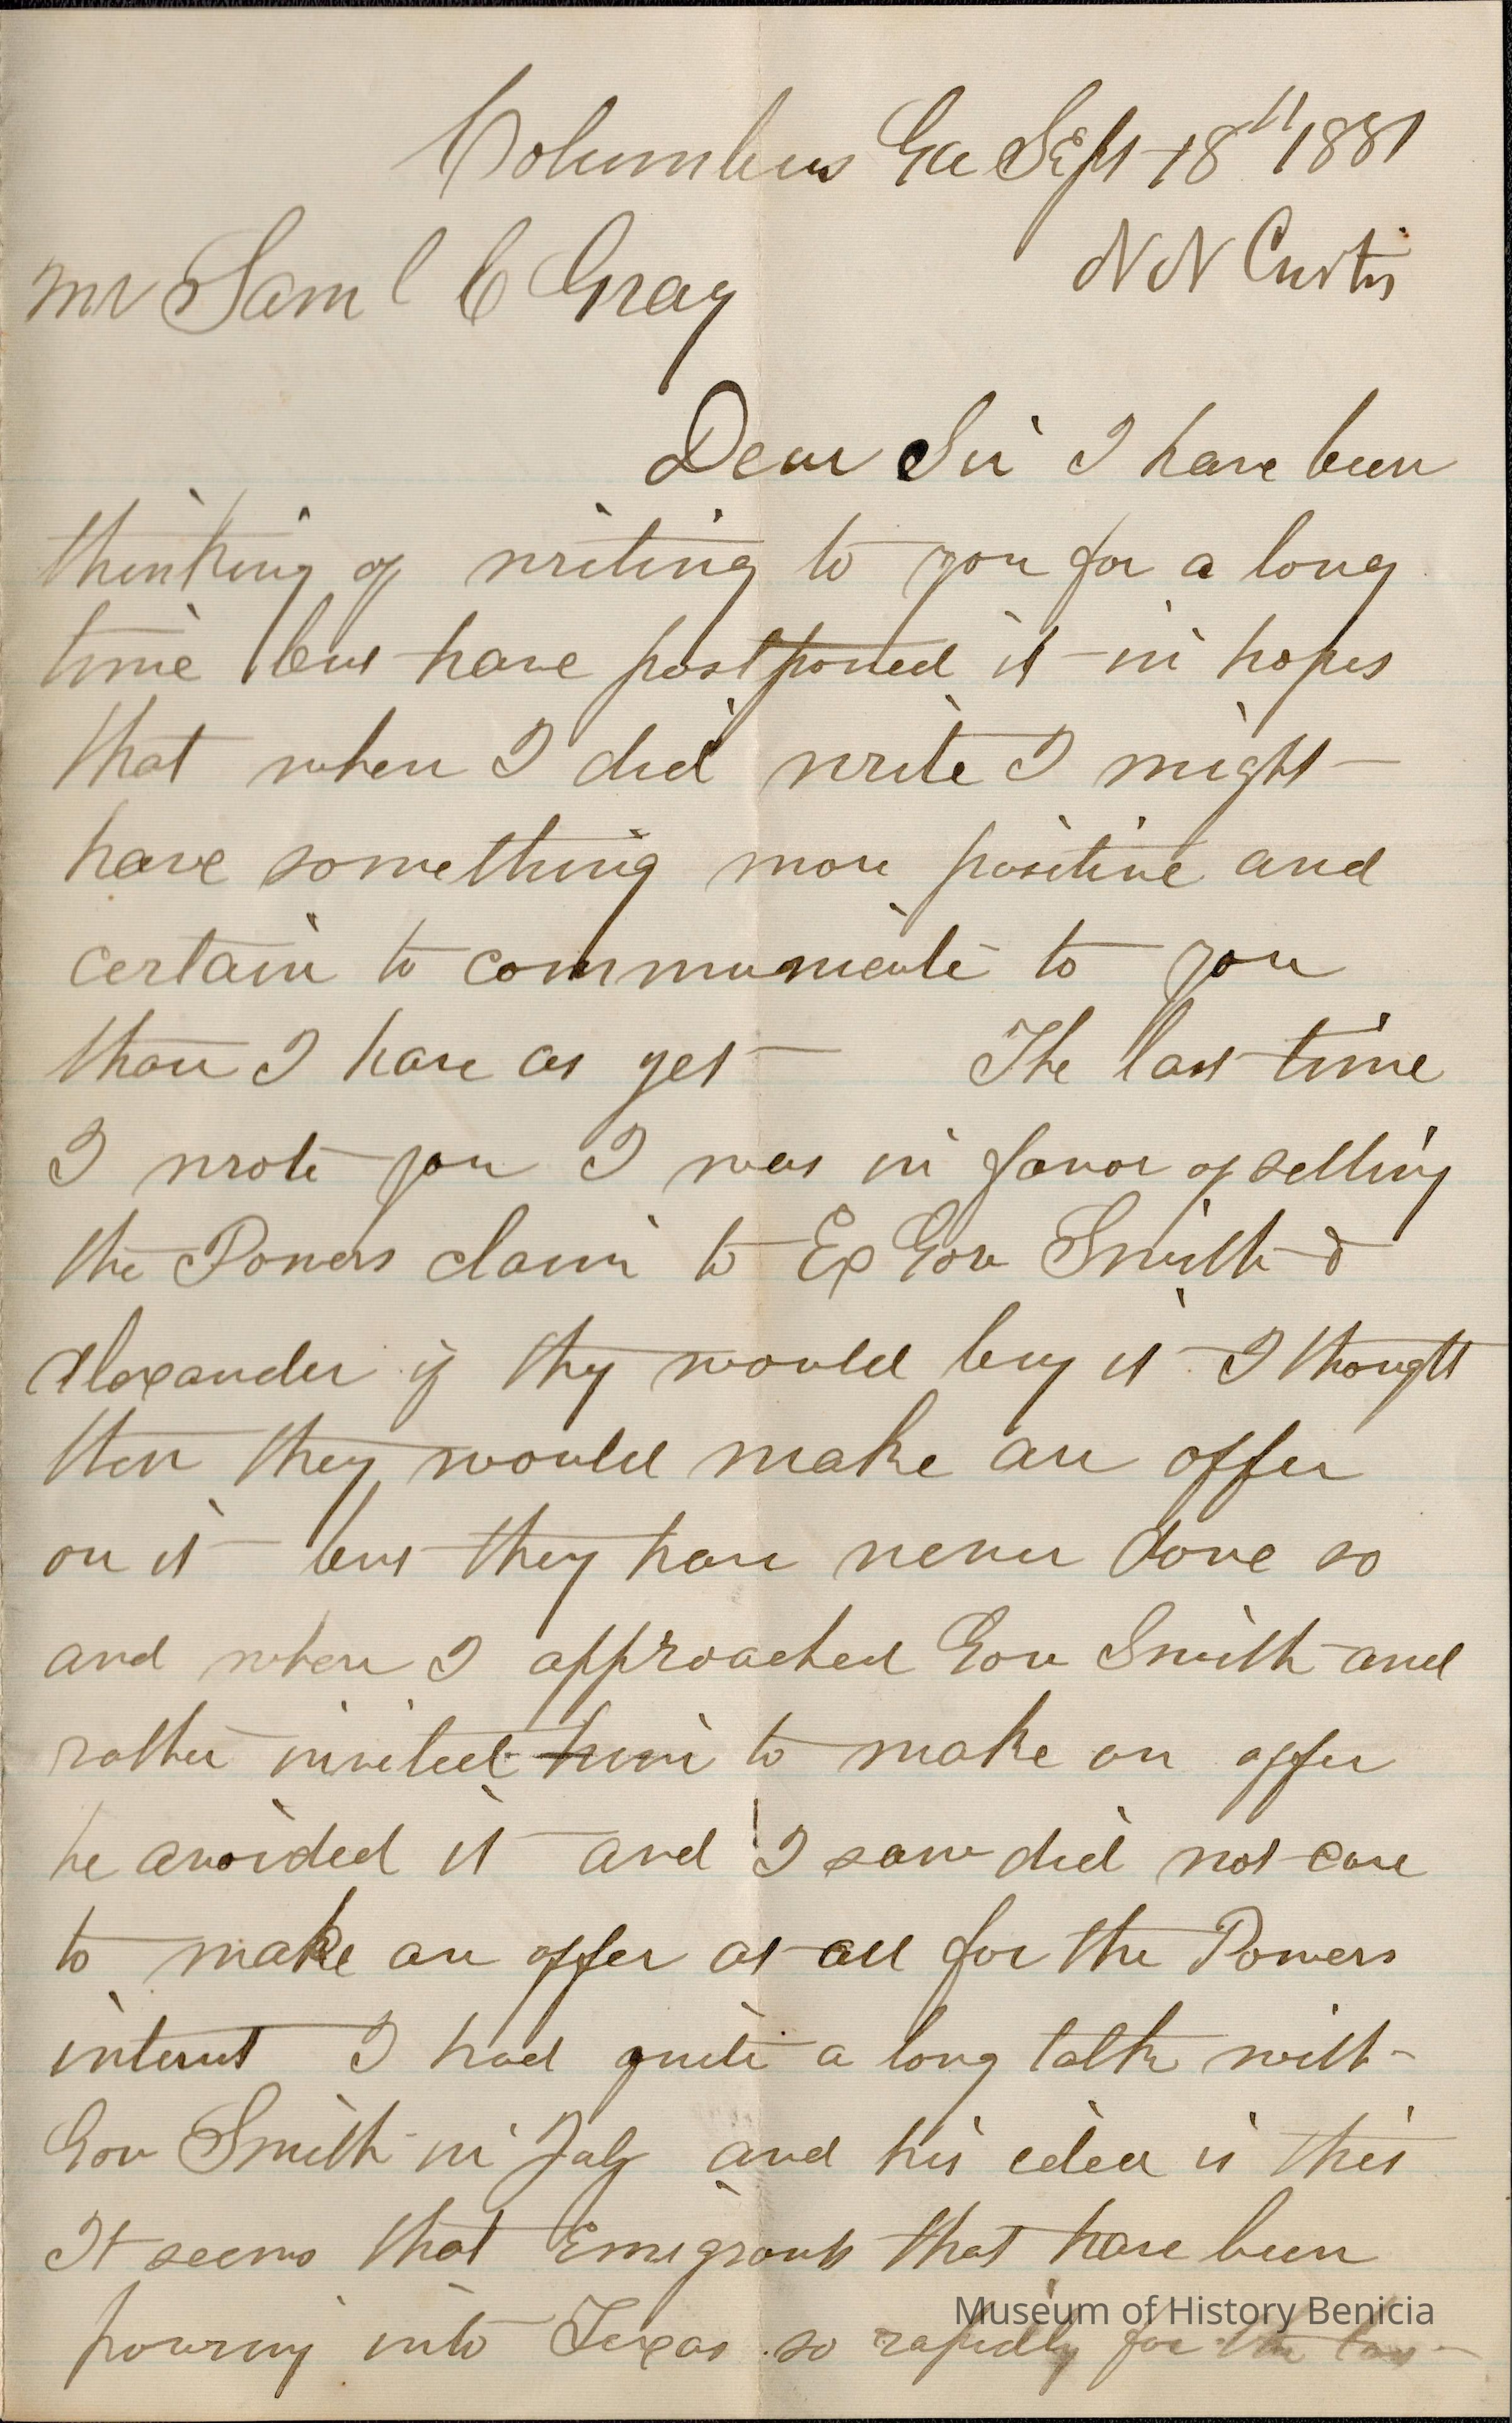 Columbus Ga Sept 18" 1881
N N Curtis
Mr Sam l C Gray
Dear Sir I have been
thinking of writing to you for a long
time but have postponed it in hopes
that when I did write I might
have something more positive and
certain to communicate to you
than I have as yet The last time
I wrote you I was in favor of selling
the Powers claim to Ex Gov Smith &
Alexander if they would buy it I thought
then they would make an offer
on it but they have never done so
and when I approached Gov Smith and
rather invited him to make an offer
he avoided it and I saw did not care
to make an offer at all for the Powers
interest I had quite a long talk with
Gov Smith in July and his idea is this
It seems that Emigrants that have been
pouring into Texas so rapidly for the last
Museum of History Benicia